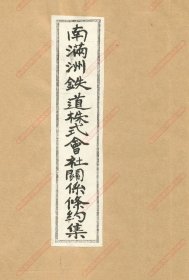 南滿洲鉄道株式會社關係條約集